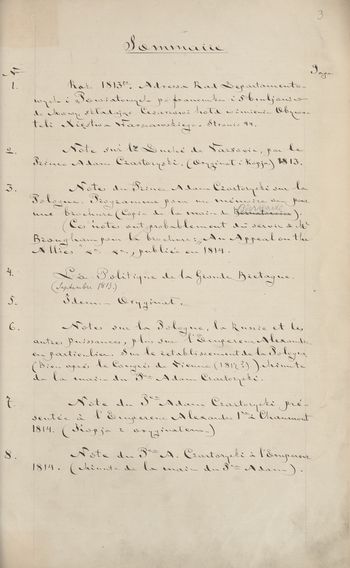 3
Sommaire
№
Pag.
1. Rok 1813ty. Adressa Rad Departamento-
wych i Powiatowych po francusku i
składając Cesarzowi hołd w imieniu Obywa-
teli Księstwa Warszawskiego. Stronic
2. Note sur le Duché de Varsovie, par le
Prince Adam Czartoryski, (Oryginał i Kopja) 1813.
3. Note du Prince Adam Czartoryski sur la
Pologne. Programme pour un mémoire ou pour
une brochure (Copie de la main de
(Ces notes ont probablement du servir à Mr
Brougham pour la brochure: "An Appeal on the
Allies &c. &c., publiée en 1814.
4. La Politique de la Grande Bretagne.
(Septembre 1813.)
5. Idem Oryginał.
6. Notes sur la Pologne, la Russie et les
autres puissances, plus sur l'Empereur Alexandre
en particulier. Sur le établissement de la Pologne
(Bien après le Congrès de Vienne (181 ?) Minute
de la main du Pce Adam Czartoryski.
7. Note du Pce Adam Czartoryski pré-
sentée à l'Empereur Alexandre 1er à Chaumont
1814. (Kopja z oryginałem.)
8. Note du Pce A. Czartoryski à l'Empereur
1814. (Minute de la main du Pce Adam).